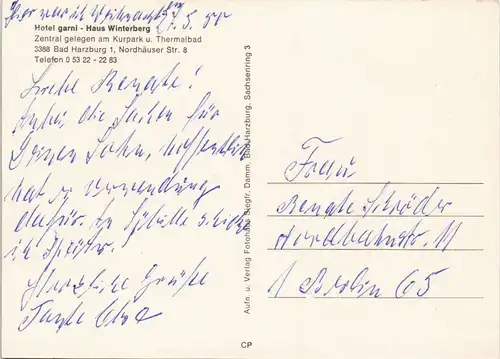 Hier war ich Weihnachten
27.5.80
Hotel garni - Haus Winterberg
Zentral gelegen am Kurpark u. Thermalbad
3388 Bad Harzburg 1, Nordhäuser Str. 8
Telefon 0 53 22 - 22 83
Liebe Renate!
Anbei die Sachen für
Deinen Sohn, hoffentlich
hat er Verwendung
dafür. schicke
ich später.
Herzliche Grüße
Tante
Aufn. u. Verlag Fotohaus Siegfr. Damm, Bad Harzburg, Sachsenring 3
CP
Frau
Renate Schröder
Nordbahnstr. 11
1 Berlin 65